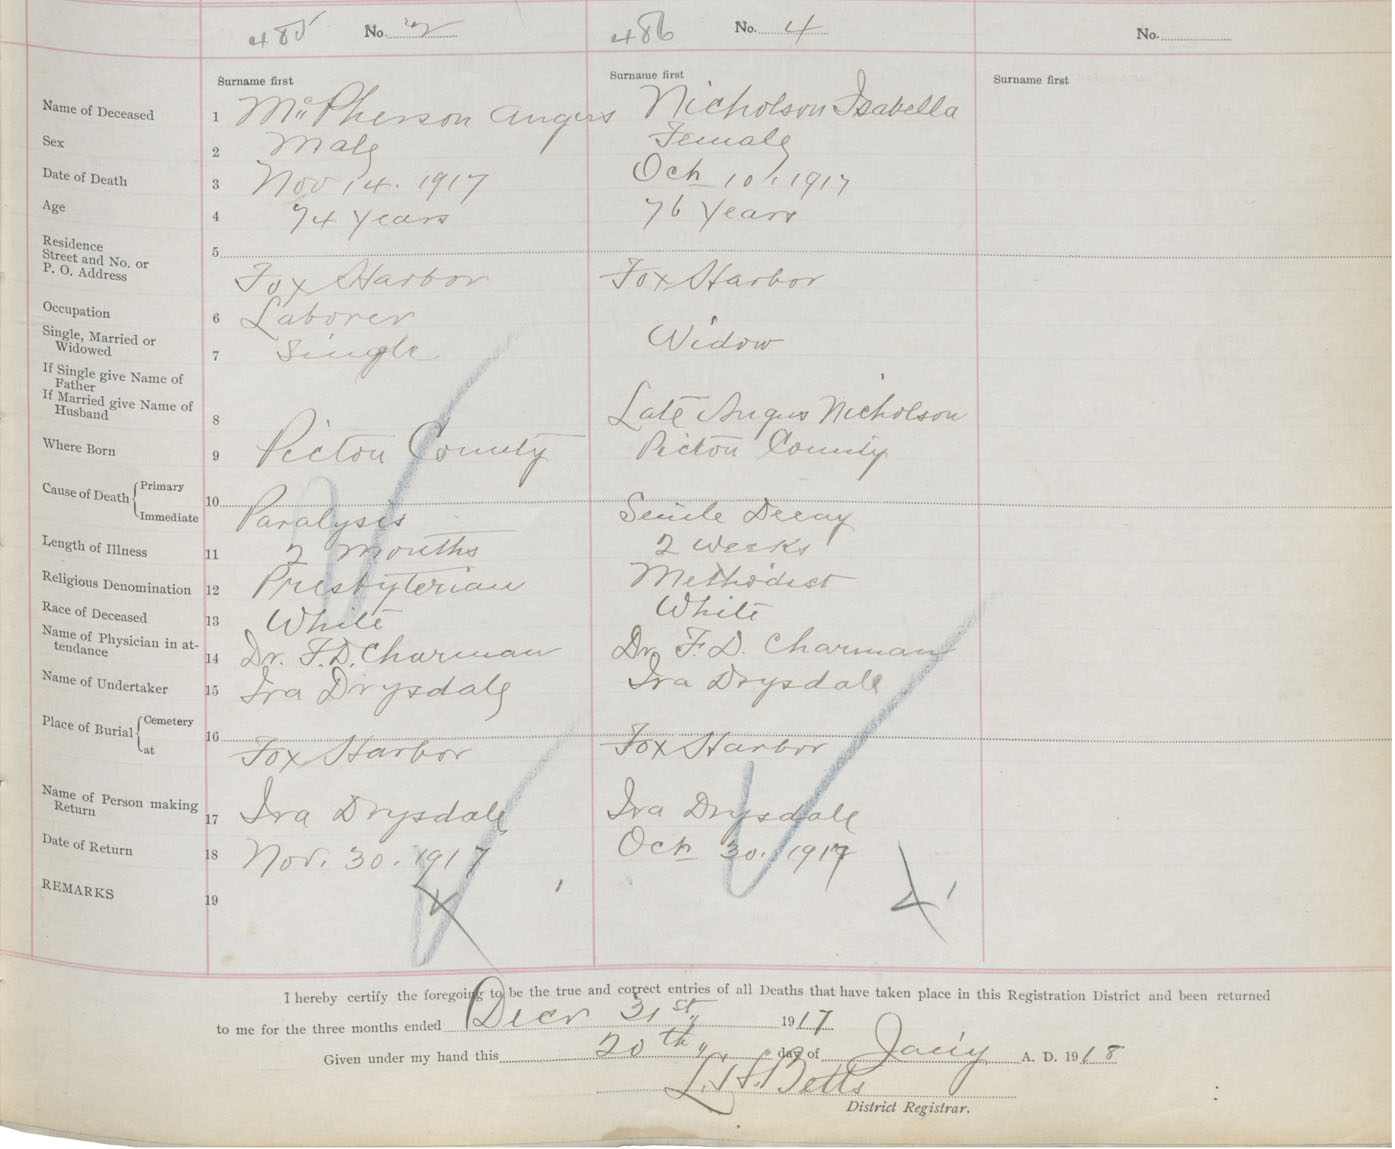 485 No. 3 486 No. 4 No.
Surname first Surname first Surname first
Name of Deceased 1 McPherson Angus Nicholson Isabella
Sex 2 Male Female
Date of Death 3 Nov 14. 1917 Oct 10, 1917
Age 4 74 Years 76 Years
Residence
Street and No. or 5
P. O. Address Fox Harbor Fox Harbor
Occupation 6 Laborer
Single, Married or
Widowed 7 Single Widow
If Single give Name of
Father
If Married give Name of
Husband 8 Late Angus Nicholson
Where Born 9 Pictou County Pictou County
Cause of Death { Primary 10
Immediate Paralysis Senile Decay
Length of Illness 11 2 months 2 weeks
Religious Denomination 12 Presbyterian Methodist
Race of Deceased 13 White White
Name of Physician in at-
tendance 14 Dr. F. D. Charman Dr. F. D. Charman
Name of Undertaker 15 Ira Drysdale Ira Drysdale
Place of Burial { Cemetery 16
at Fox Harbor Fox Harbor
Name of Person making
Return 17 Ira Drysdale Ira Drysdale
Date of Return 18 Nov. 30. 1917 Oct 30. 1917
REMARKS 19
I hereby certify the foregoing to be the true and correct entries of all Deaths that have taken place in this Registration District and been returned
to me for the three months ended Decr 31st 1917
Given under my hand this 20th day of Jany A. D. 1918
L. H. Betts
District Registrar.